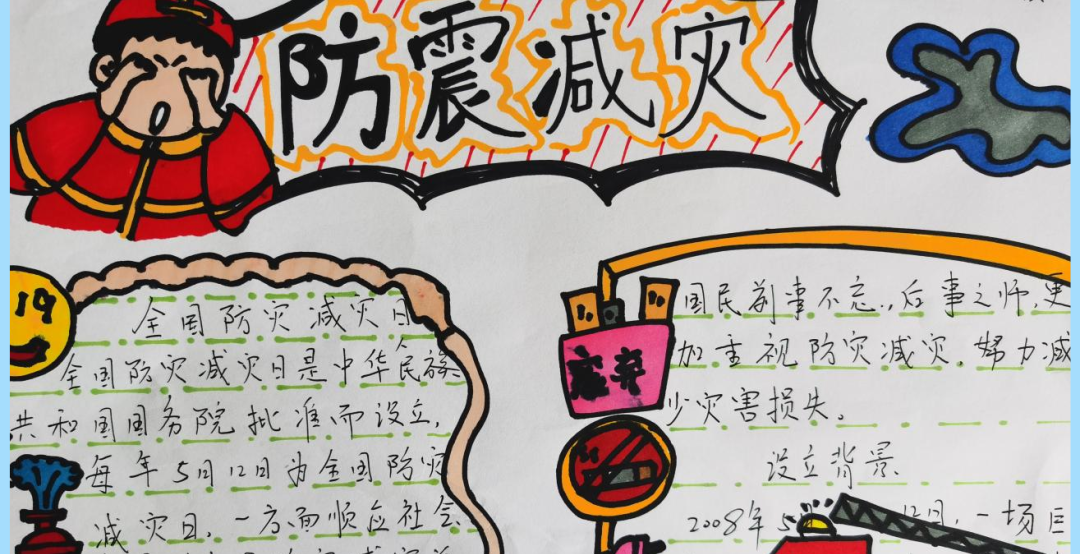 防震减灾
19
全国防灾减灾日
全国防灾减灾日是中华人民族
共和国国务院批准而设立,
每年5月12日为全国防灾
减灾日,一方面顺应社会
国民前事不忘,,后事之师,更
加重视防灾减灾,努力减
少灾害损失。
废弃
设立背景
2008年5 12日,一场巨